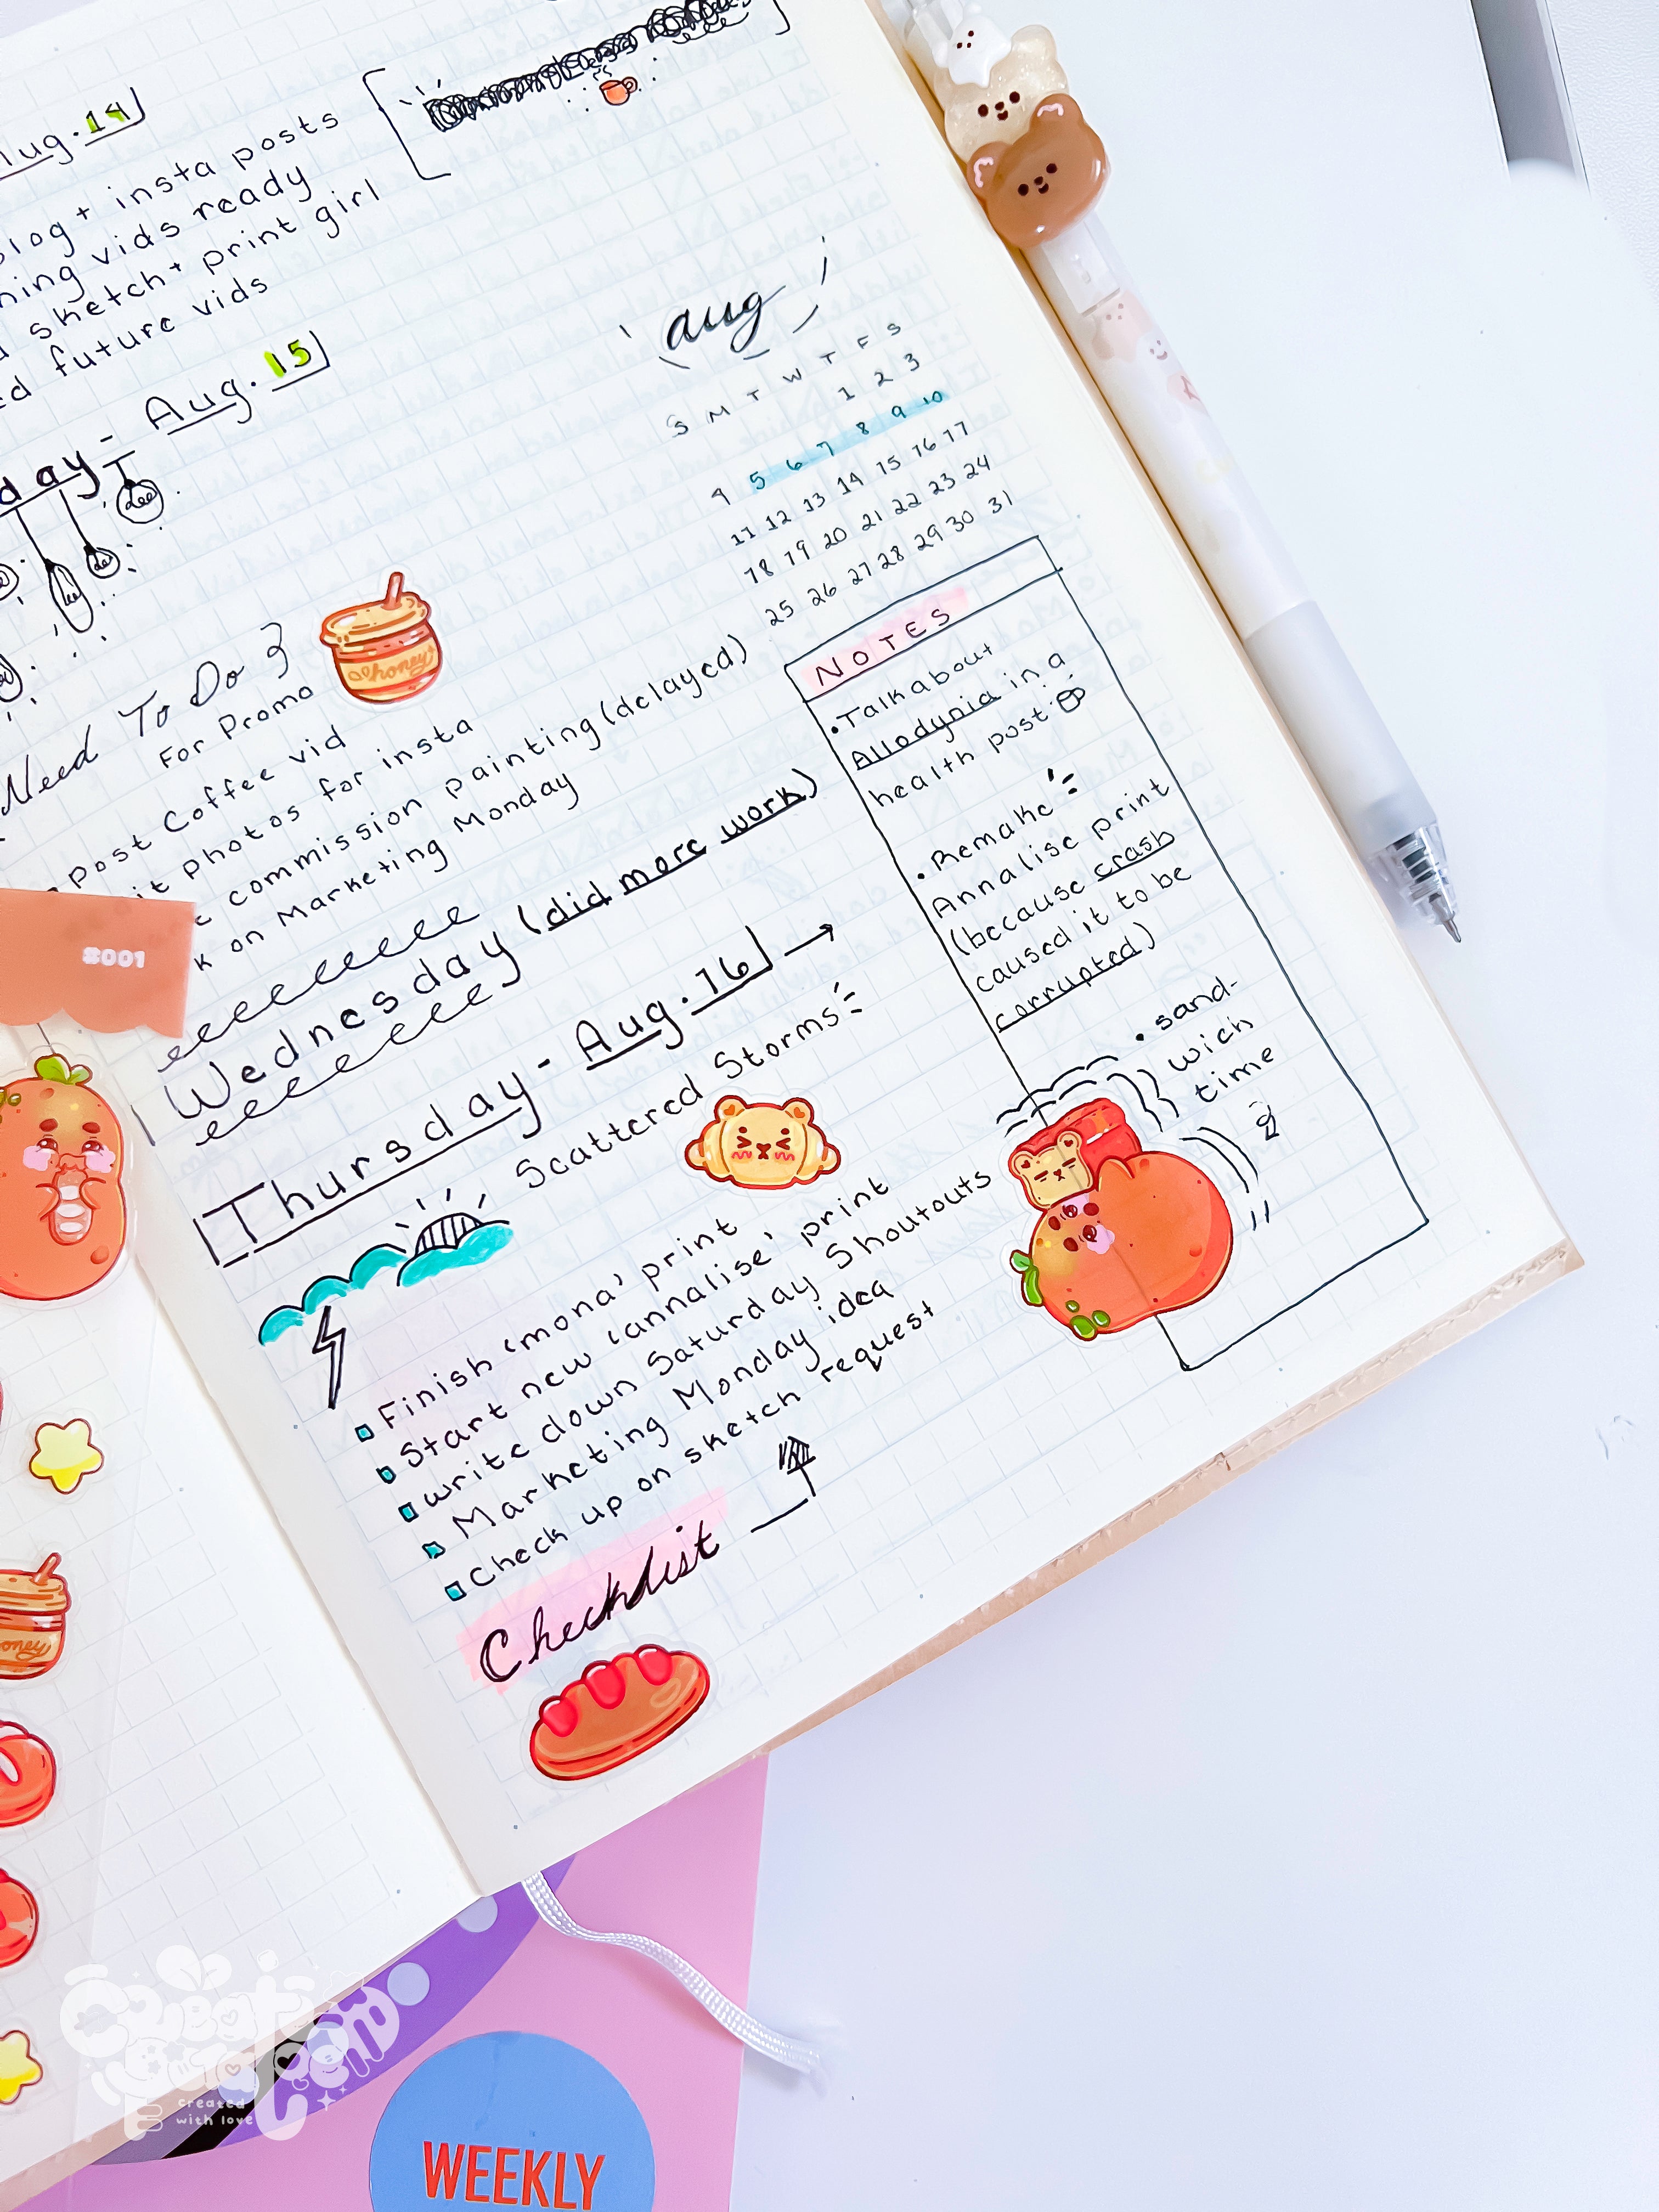 Aug. 14
blog + insta posts
vids ready
sketch + print girl
future vids
day - Aug. 15
Need To Do }
For Promo
honey
post Coffee vid
photos for insta
commission painting (delayed)
on Marketing Monday
Wednesday (did more work)
Thursday - Aug. 16 →
Scattered Storms
Finish 'mona' print
Start new 'annalise' print
write down Saturday Shoutouts
Marketing Monday idea
Check up on sketch request
Checklist
aug
S M T W T F S
1 2 3
4 5 6 7 8 9 10
11 12 13 14 15 16 17
18 19 20 21 22 23 24
25 26 27 28 29 30 31
NOTES
• Talk about
Allodynia in a
health post
• Remake
Annalise print
(because crash
caused it to be
corrupted)
• sand-
wich
time
#001
created
with love
WEEKLY